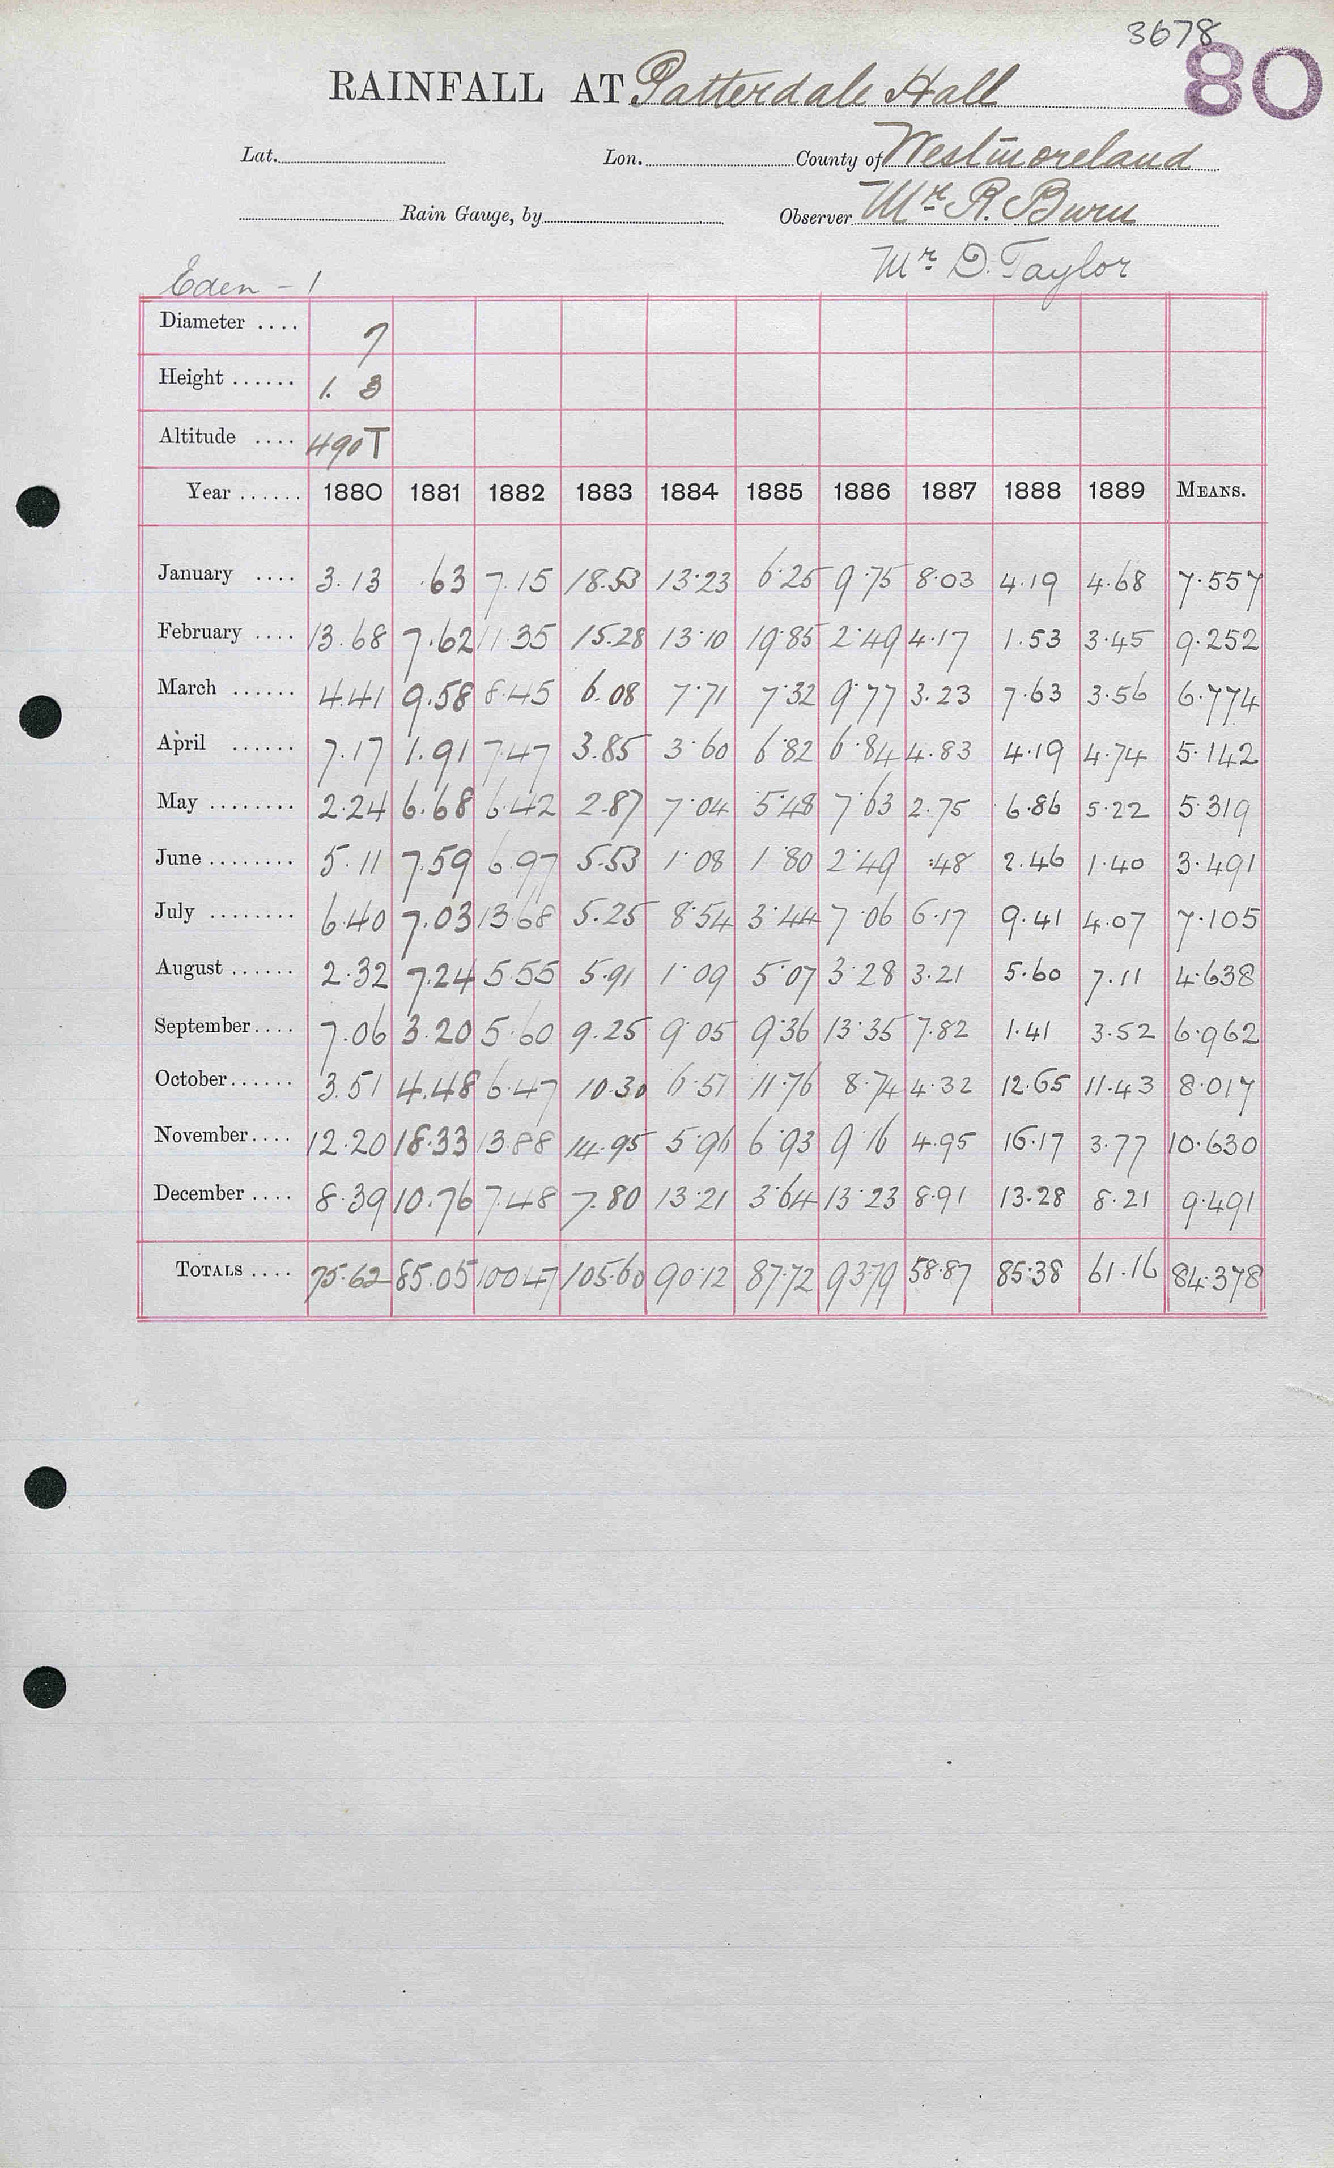 3678
80
RAINFALL AT Patterdale Hall
Lat. Lon. County of Westmoreland
Rain Gauge, by Observer Mr R. Burn
Mr D. Taylor
Eden - 1
Diameter .... 7
Height ...... 1. 3
Altitude .... 490T
Year ...... 1880 1881 1882 1883 1884 1885 1886 1887 1888 1889 MEANS.
January .... 3.13 .63 7.15 18.53 13.23 6.25 9.75 8.03 4.19 4.68 7.557
February .... 13.68 7.62 11.35 15.28 13.10 19.85 2.49 4.17 1.53 3.45 9.252
March ...... 4.41 9.58 8.45 6.08 7.71 7.32 9.77 3.23 7.63 3.56 6.774
April ...... 7.17 1.91 7.47 3.85 3.60 6.82 6.84 4.83 4.19 4.74 5.142
May ........ 2.24 6.68 6.42 2.87 7.04 5.48 7.63 2.75 6.86 5.22 5.319
June ........ 5.11 7.59 6.97 5.53 1.08 1.80 2.49 .48 2.46 1.40 3.491
July ........ 6.40 7.03 13.68 5.25 8.54 3.44 7.06 6.17 9.41 4.07 7.105
August ...... 2.32 7.24 5.55 5.91 1.09 5.07 3.28 3.21 5.60 7.11 4.638
September .... 7.06 3.20 5.60 9.25 9.05 9.36 13.35 7.82 1.41 3.52 6.962
October ...... 3.51 4.48 6.47 10.30 6.51 11.76 8.74 4.32 12.65 11.43 8.017
November .... 12.20 18.33 13.88 14.95 5.96 6.93 9.16 4.95 16.17 3.77 10.630
December .... 8.39 10.76 7.48 7.80 13.21 3.64 13.23 8.91 13.28 8.21 9.491
TOTALS .... 75.62 85.05 100.47 105.60 90.12 87.72 93.79 58.87 85.38 61.16 84.378